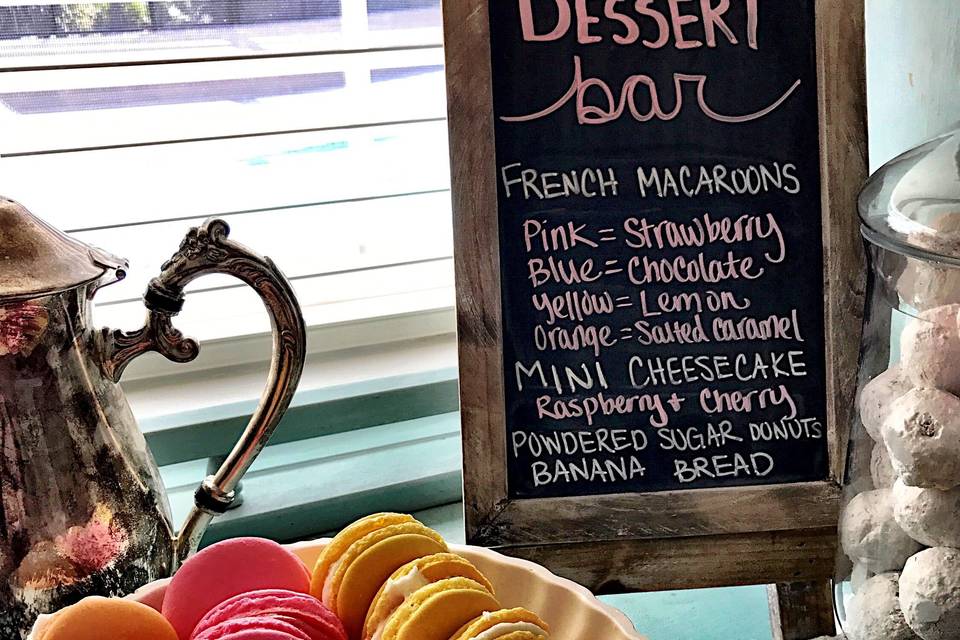 DESSERT
bar
FRENCH MACAROONS
Pink = Strawberry
Blue = Chocolate
Yellow = Lemon
Orange = Salted Caramel
MINI CHEESECAKE
Raspberry + Cherry
POWDERED SUGAR DONUTS
BANANA BREAD